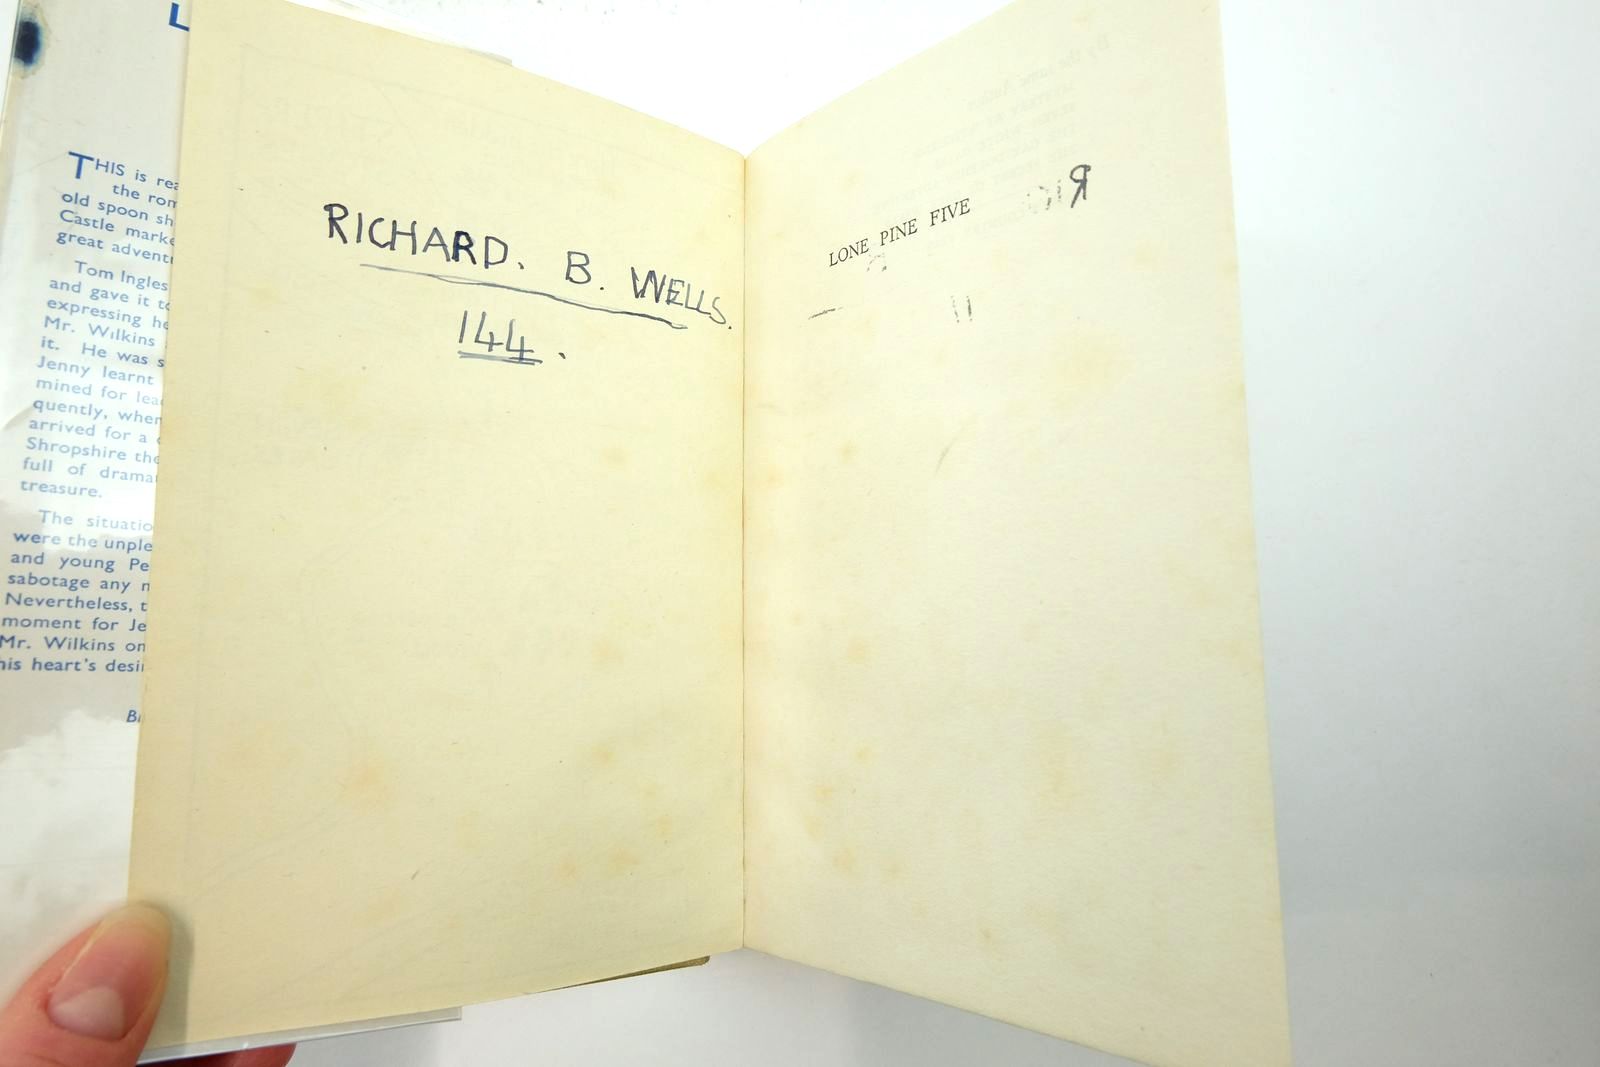 L
THIS is rea
the rom
old spoon sh
Castle marke
great advent
Tom Ingles
and gave it to
expressing he
Mr. Wilkins
it. He was s
Jenny learnt
mined for lea
quently, when
arrived for a
Shropshire the
full of drama
treasure.
The situatio
were the unple
and young Pe
sabotage any
Nevertheless, t
moment for Je
Mr. Wilkins on
his heart's desi
RICHARD. B. WELLS.
144.
LONE PINE FIVE